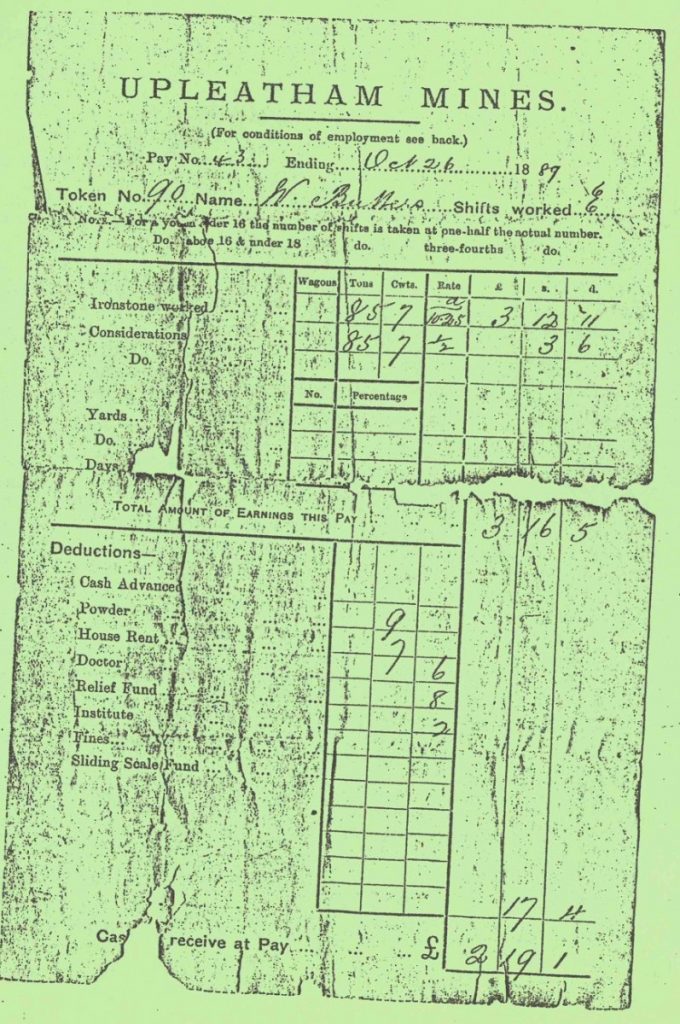 UPLEATHAM MINES.
(For conditions of employment see back.)
Pay No. 43 Ending Oct 26 1889
Token No. 90 Name W Shifts worked
Note.—For a under 16 the number of shifts is taken at one-half the actual number.
Do. above 16 & under 18 do. three-fourths do.
Wagons Tons Cwts. Rate £ s. d.
Ironstone worked 85 7 10.25 3 12 11
Considerations 85 7 1/2 3 6
Do.
No. Percentage
Yards
Do.
Days
TOTAL AMOUNT OF EARNINGS THIS PAY 3 16 5
Deductions—
Cash Advanced
Powder 9
House Rent 7 6
Doctor 8
Relief Fund 2
Institute
Fines
Sliding Scale Fund
17 4
receive at Pay £ 2 19 1